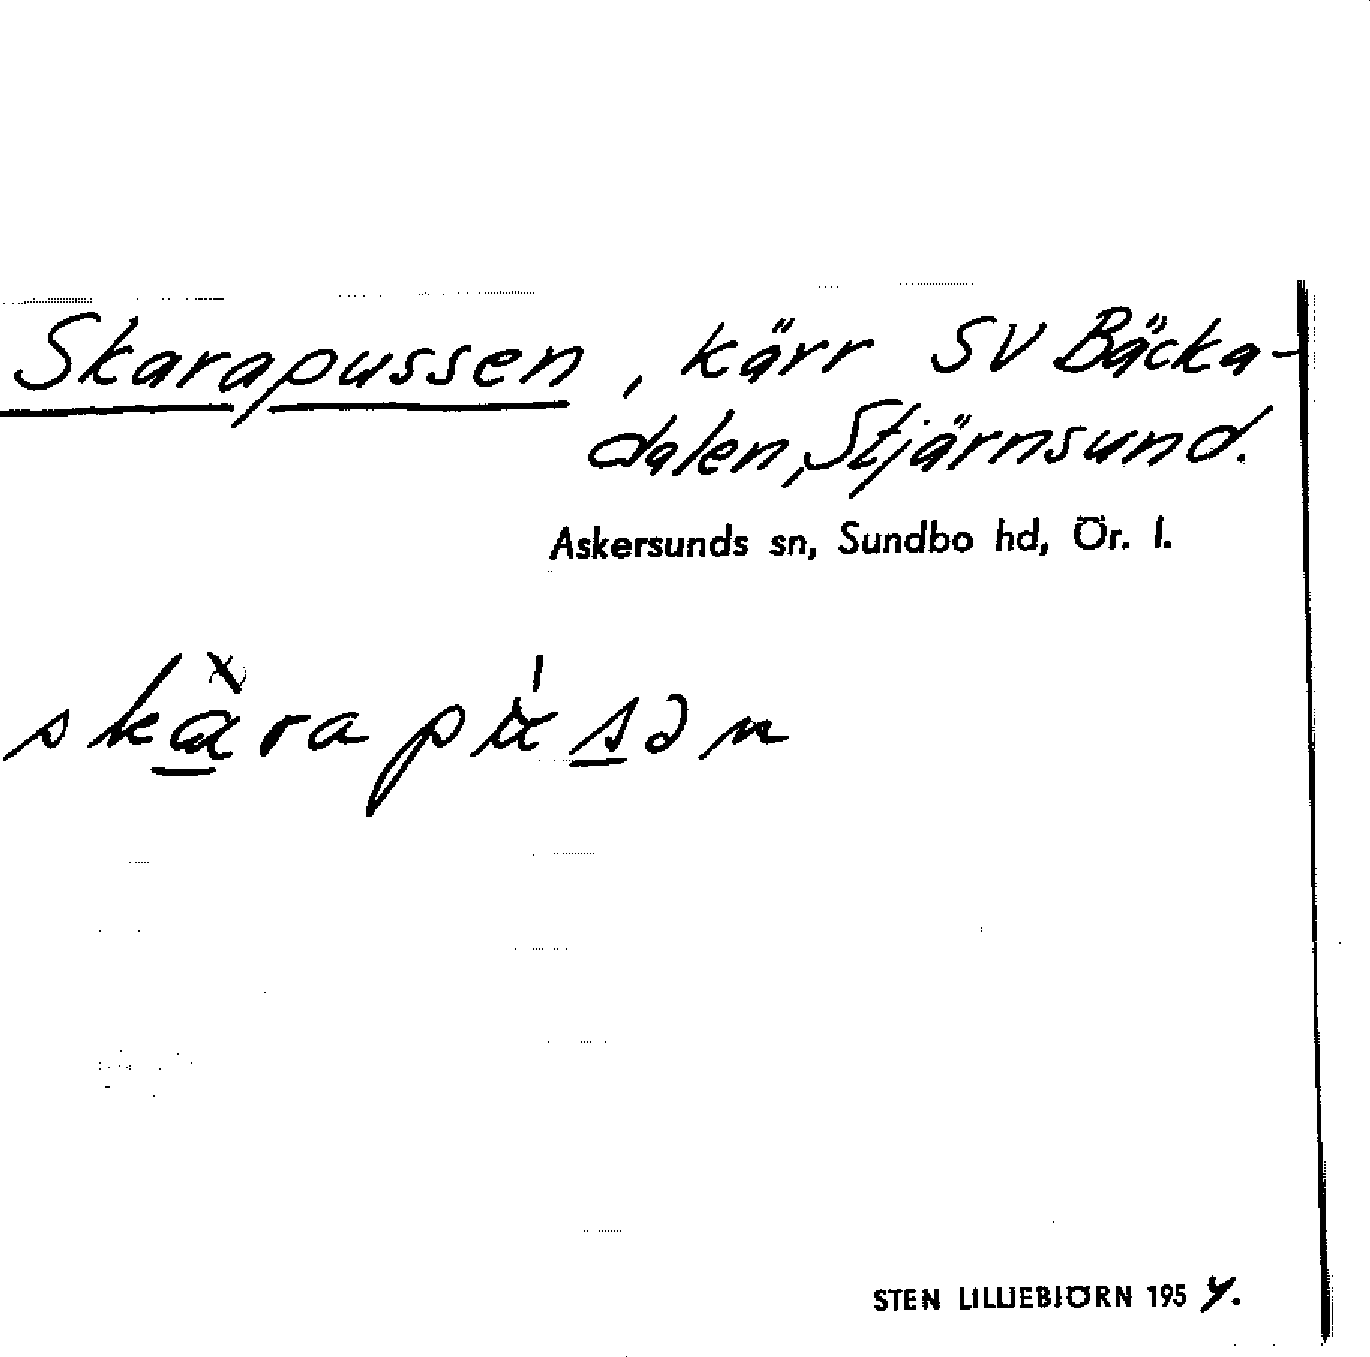 Skarapussen, kärr SV Bäcka-
dalen, Stjärnsund.
Askersunds sn, Sundbo hd, Ör. l.
STEN LILLJEBJÖRN 1954.